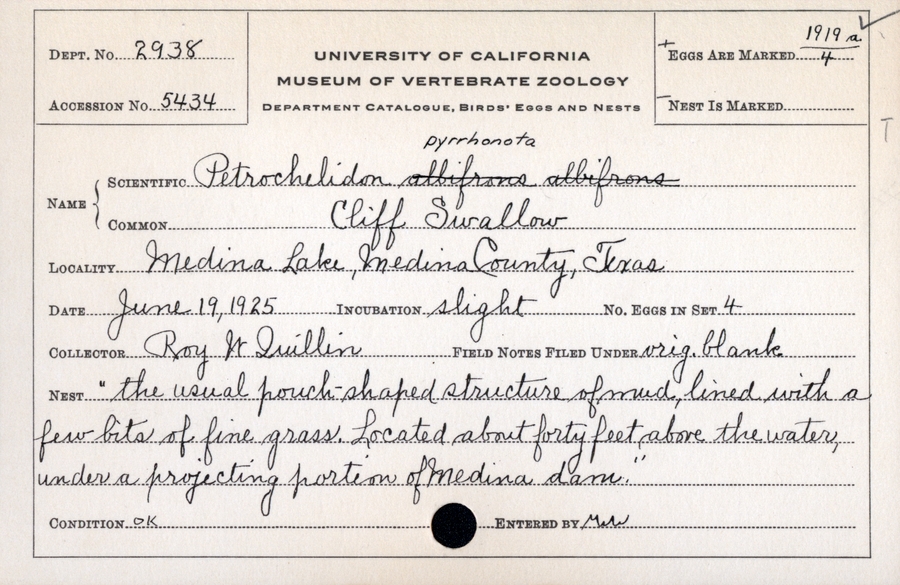 Dept. No. 2938
Accession No. 5434
UNIVERSITY OF CALIFORNIA
MUSEUM OF VERTEBRATE ZOOLOGY
Department Catalogue, Birds' Eggs and Nests
+ Eggs Are Marked 1919 a/4
- Nest Is Marked
T
pyrrhonota
Name { Scientific Petrochelidon albifrons albifrons
Common Cliff Swallow
Locality Medina Lake, Medina County, Texas
Date June 19, 1925 Incubation slight No. Eggs in Set 4
Collector Roy W Quillin Field Notes Filed Under orig. blank
Nest "the usual pouch-shaped structure of mud, lined with a
few bits of fine grass. Located about forty feet above the water,
under a projecting portion of Medina dam."
Condition OK Entered by